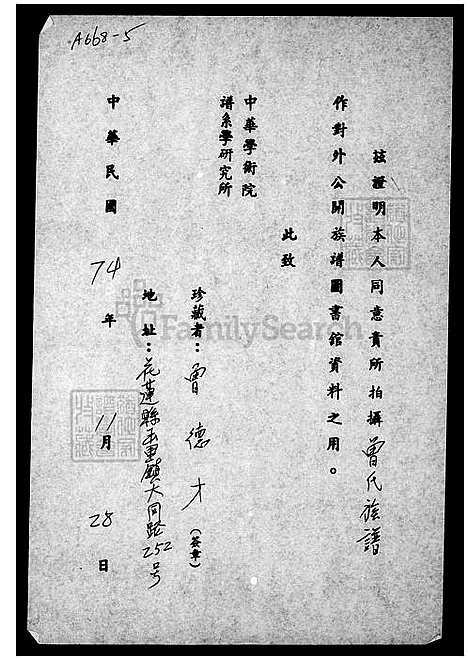 A668-5
茲證明本人同意貴所拍攝曾氏族譜
作對外公開族譜圖書館資料之用。
此致
中華學術院
譜系學研究所
珍藏者：曾德才(簽章)
地址：花蓮縣玉里鎮大同路252号
中華民國74年11月28日
FamilySearch